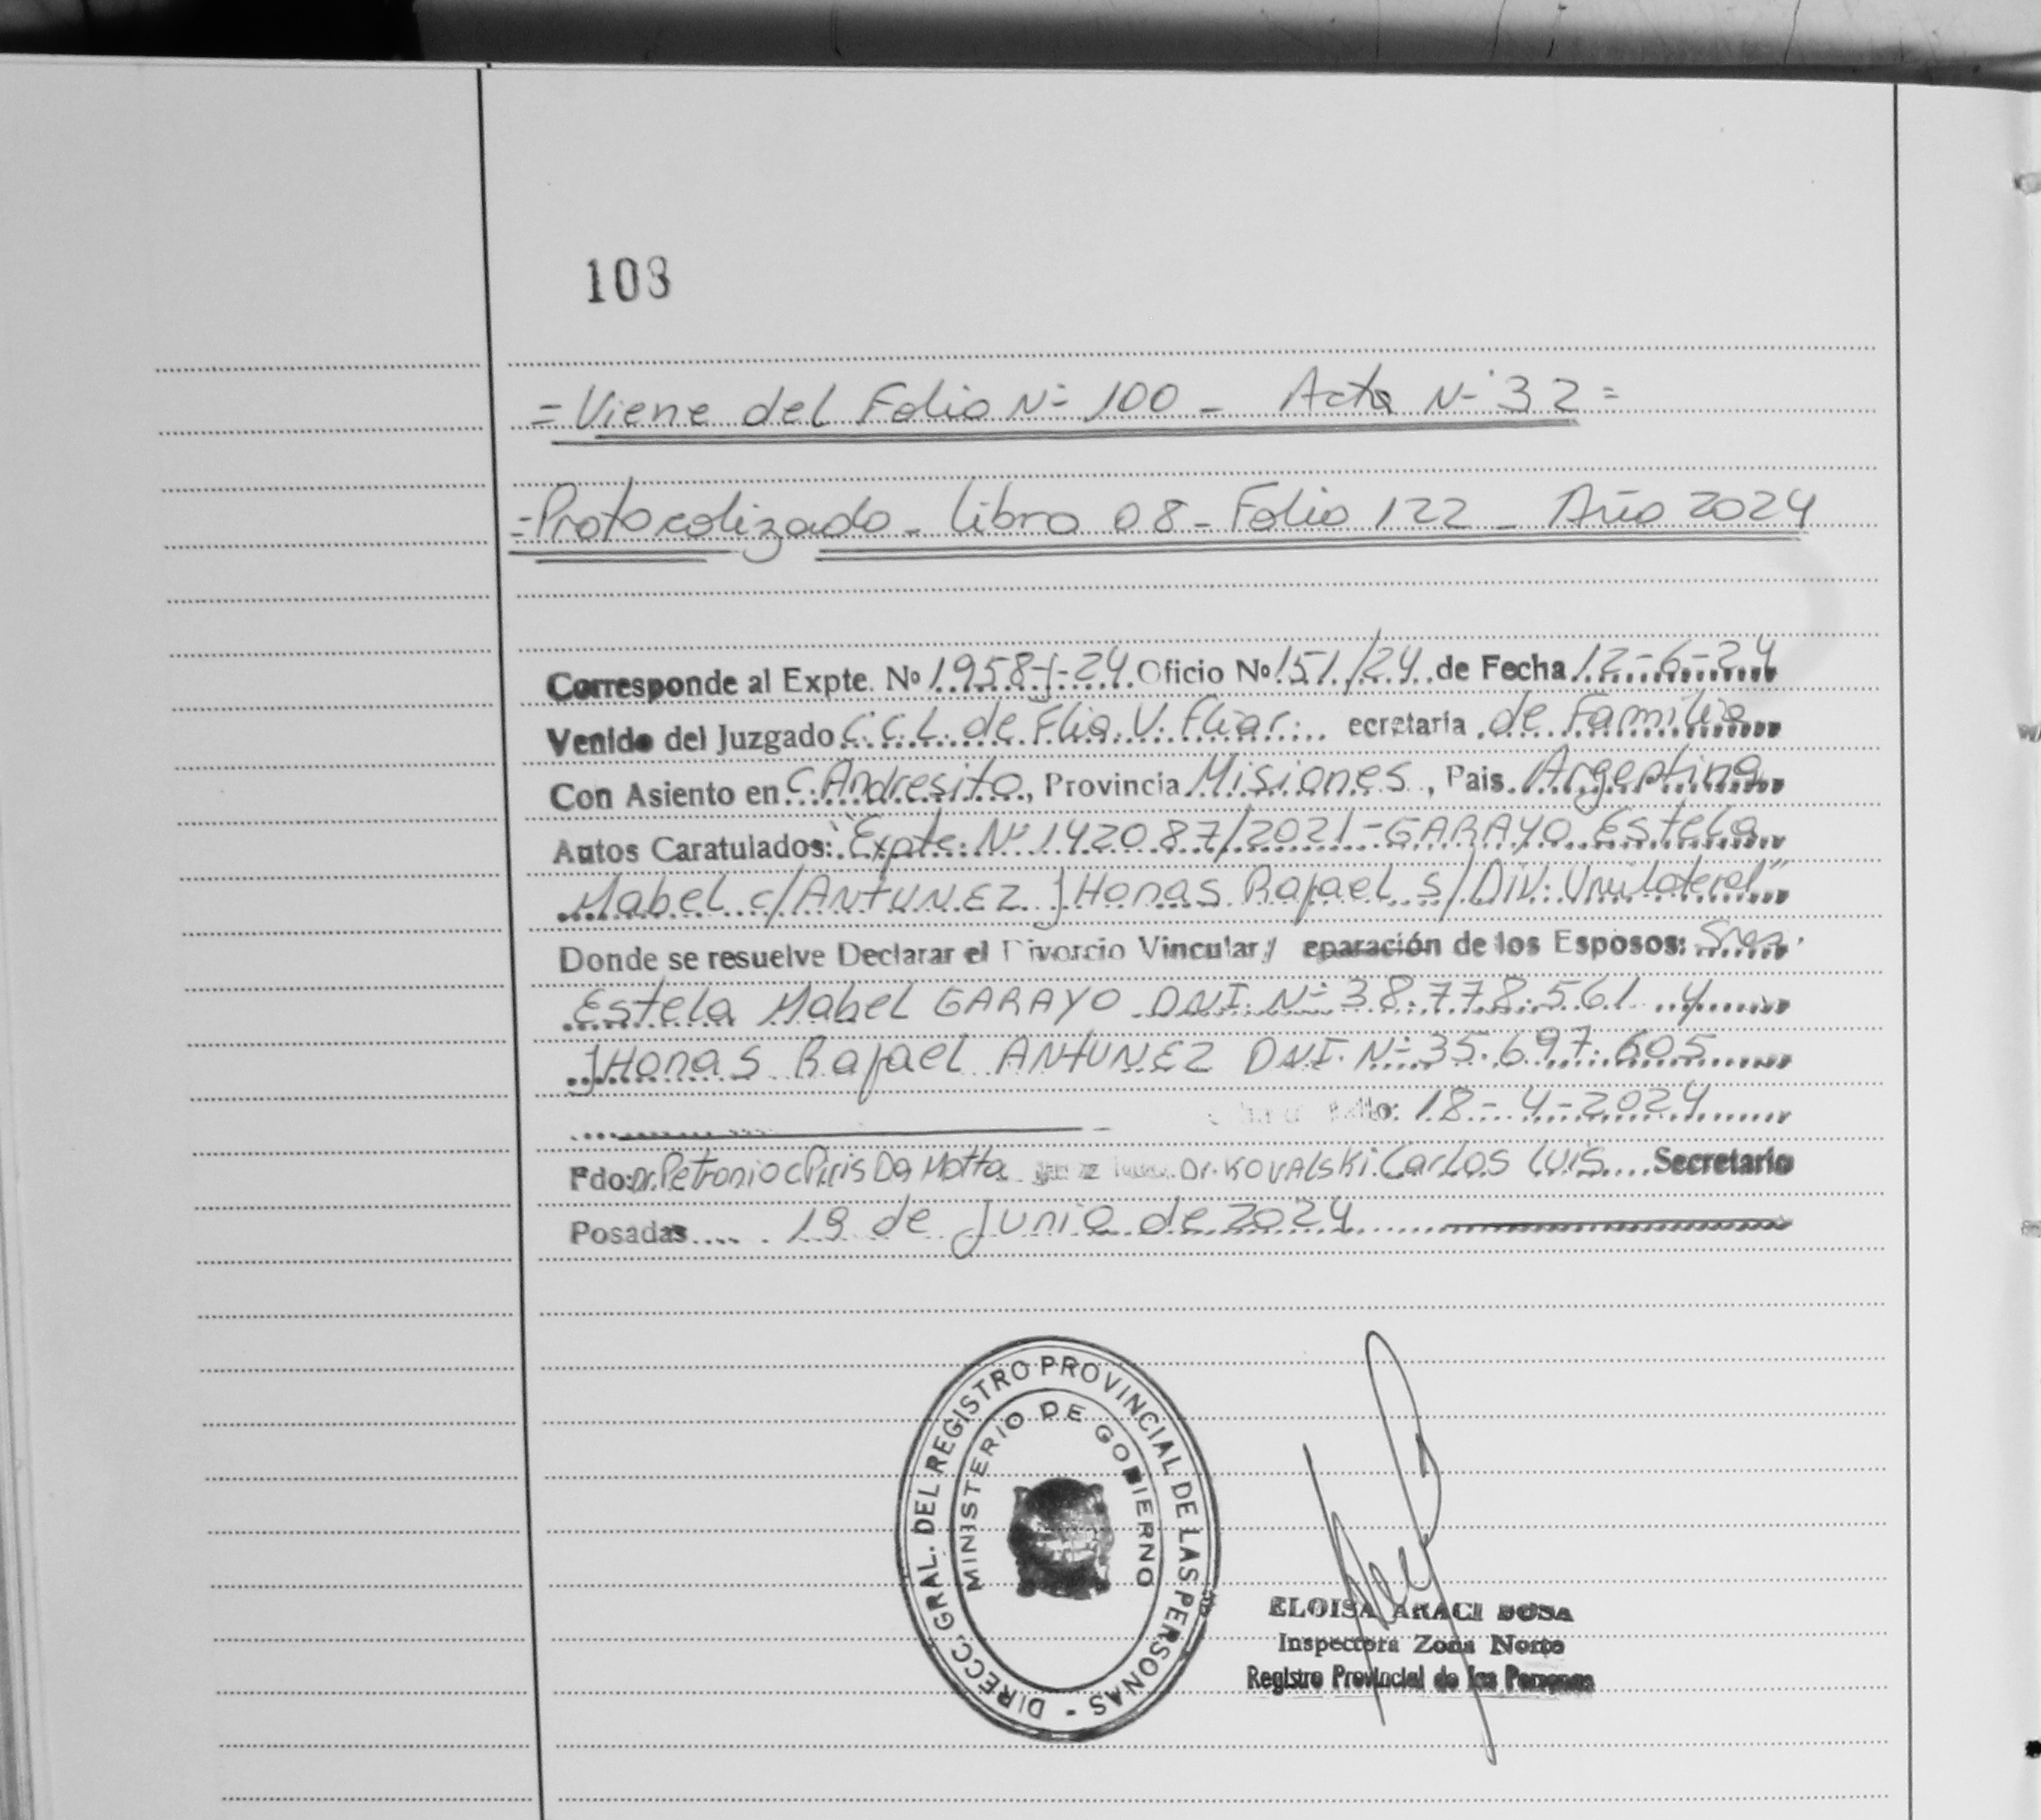 103
= Viene del Folio Nº 100 - Acta Nº 32 =
= Protocolizado - Libro 08 - Folio 122 - Año 2024
Corresponde al Expte. Nº 1958-J-24 Oficio Nº 151/24 de Fecha 12-6-24
Venido del Juzgado C.C.L. de Flia. V. Fliar. ecretaría de Familia
Con Asiento en C. Andresito, Provincia Misiones, Pais. Argentina
Autos Caratulados: "Expte. Nº 142087/2021 - GARAYO Estela
Mabel c/ ANTUNEZ JHonas Rafael s/ Div. Unilateral"
Donde se resuelve Declarar el Divorcio Vincular / eparación de los Esposos: Sres.
Estela Mabel GARAYO DNI. Nº 38.778.561 y
JHonas Rafael ANTUNEZ DNI. Nº 35.697.605
llo: 18-4-2024
Fdo: Dr. Petronio c Piris Da Motta Dr. KOVALSKi Carlos Luis Secretario
Posadas 19 de Junio de 2024
DIRECC. GRAL. DEL REGISTRO PROVINCIAL DE LAS PERSONAS -
MINISTERIO DE GOBIERNO
ELOISA ARACI SOSA
Inspectora Zona Norte
Registro Provincial de las Personas